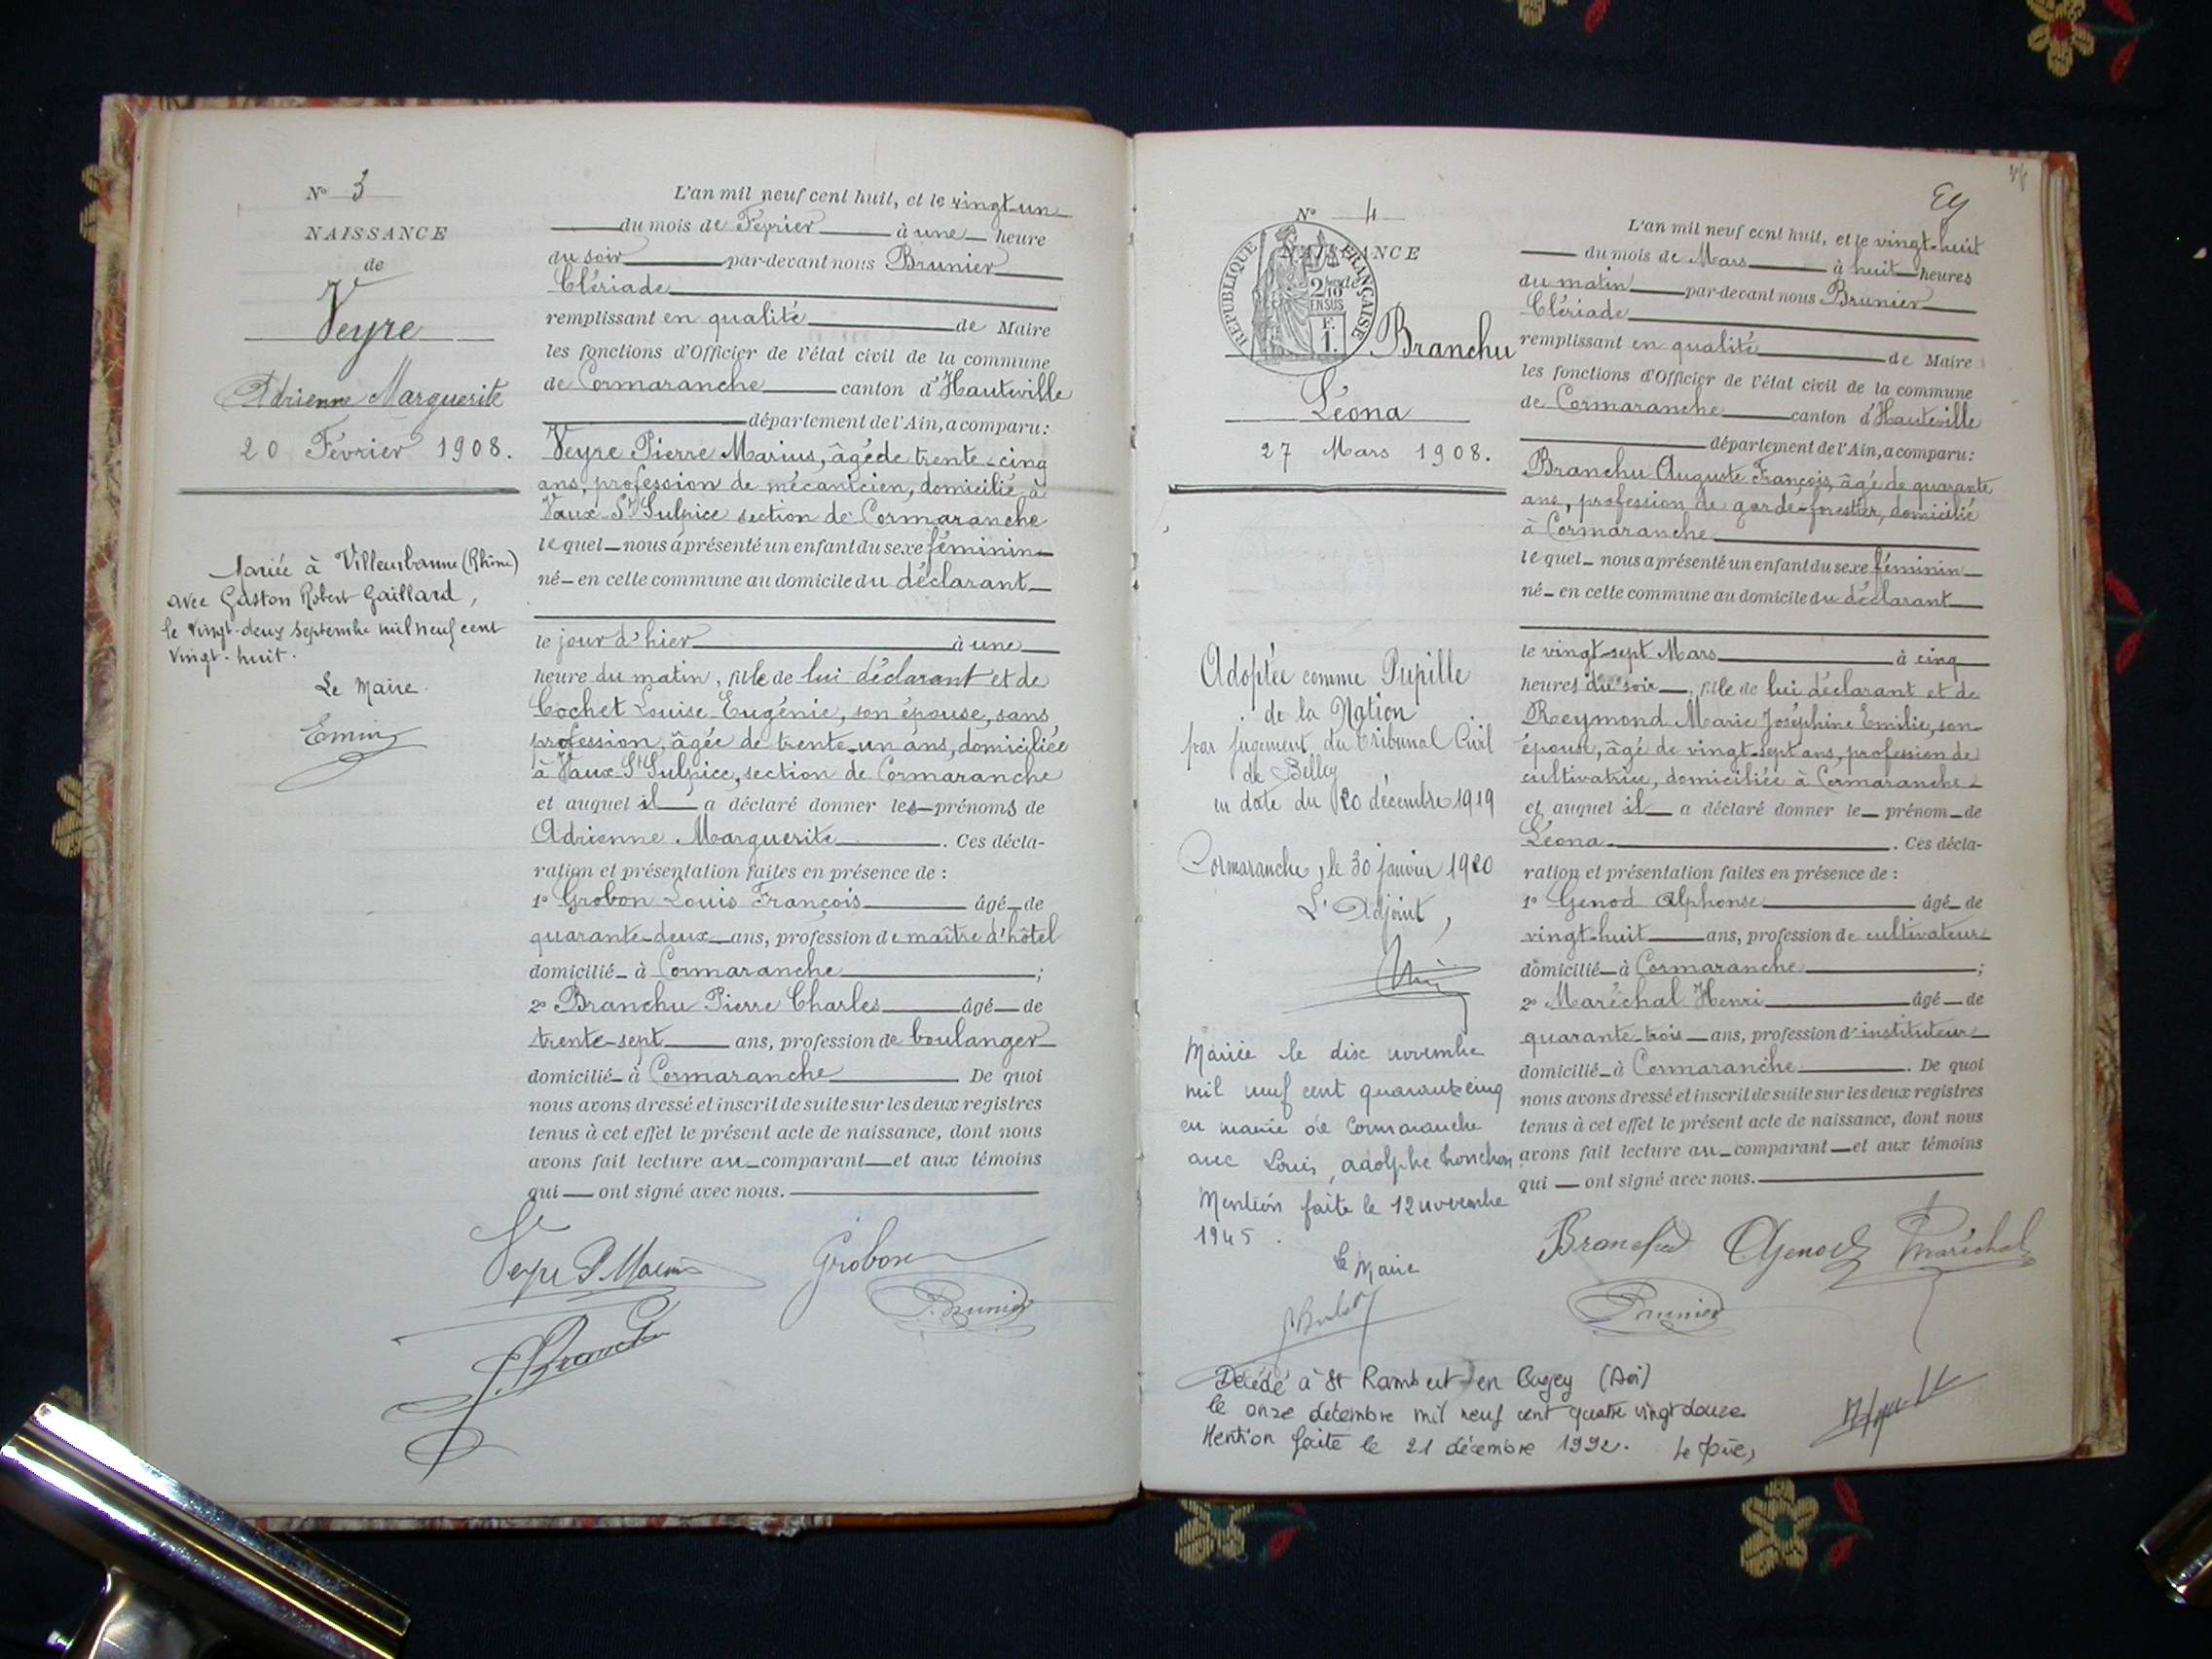 N° 3
NAISSANCE
de
Veyre
Adrienne Marguerite
20 Février 1908.
Mariée à Villeurbanne (Rhône)
avec Gaston Robert Gaillard,
le vingt-deux septembre mil neuf cent
vingt-huit.
Le Maire
L'an mil neuf cent huit, et le vingt-un
du mois de Février à une heure
du soir par-devant nous Brunier
Clériade
remplissant en qualité de Maire
les fonctions d'Officier de l'état civil de la commune
de Cormaranche canton d'Hauteville
département de l'Ain, a comparu:
Veyre Pierre Marius, âgé de trente-cinq
ans, profession de mécanicien, domicilié à
Vaux St Sulpice section de Cormaranche
lequel nous a présenté un enfant du sexe féminin
né en cette commune au domicile du déclarant
le jour d'hier à une
heure du matin, fille de lui déclarant et de
Cochet Louise Eugénie, son épouse, sans
profession, âgée de trente-un ans, domiciliée
à Vaux St Sulpice, section de Cormaranche
et auquel il a déclaré donner les prénoms de
Adrienne Marguerite. Ces décla-
ration et présentation faites en présence de :
1° Grobon Louis François âgé de
quarante-deux ans, profession de maître d'hôtel
domicilié à Cormaranche ;
2° Branchu Pierre Charles âgé de
trente-sept ans, profession de boulanger
domicilié à Cormaranche. De quoi
nous avons dressé et inscrit de suite sur les deux registres
tenus à cet effet le présent acte de naissance, dont nous
avons fait lecture au comparant et aux témoins
qui ont signé avec nous.
Veyre P. Marius Grobon
P. Brunier
Branchu
N° 4
NAISSANCE
de
RÉPUBLIQUE FRANÇAISE
2/10 EN SUS
F. 1.
Branchu
Léona
27 Mars 1908.
Adoptée comme Pupille
de la Nation
par jugement du Tribunal Civil
de Belley
en date du 20 décembre 1919
Cormaranche, le 30 janvier 1920
L'Adjoint,
Mariée le dix novembre
mil neuf cent quarante cinq
en mairie de Cormaranche
avec Louis, Adolphe
Mention faite le 12 novembre
1945.
Le Maire
L'an mil neuf cent huit, et le vingt-huit
du mois de Mars à huit heures
du matin par-devant nous Brunier
Clériade
remplissant en qualité de Maire
les fonctions d'Officier de l'état civil de la commune
de Cormaranche canton d'Hauteville
département de l'Ain, a comparu:
Branchu Auguste François, âgé de quarante
ans, profession de garde-forestier, domicilié
à Cormaranche
lequel nous a présenté un enfant du sexe féminin
né en cette commune au domicile du déclarant
le vingt-sept Mars à cinq
heures du soir, fille de lui déclarant et de
Reymond Marie Joséphine Emilie, son
épouse, âgé de vingt-sept ans, profession de
cultivatrice, domiciliée à Cormaranche
et auquel il a déclaré donner le prénom de
Léona. Ces décla-
ration et présentation faites en présence de :
1° Genod Alphonse âgé de
vingt-huit ans, profession de cultivateur
domicilié à Cormaranche ;
2° Maréchal Henri âgé de
quarante-trois ans, profession d'instituteur
domicilié à Cormaranche. De quoi
nous avons dressé et inscrit de suite sur les deux registres
tenus à cet effet le présent acte de naissance, dont nous
avons fait lecture au comparant et aux témoins
qui ont signé avec nous.
Branchu AGenod Maréchal
Brunier
Décédé à St Rambert en Bugey (Ain)
le onze décembre mil neuf cent quatre vingt douze
Mention faite le 21 décembre 1992.